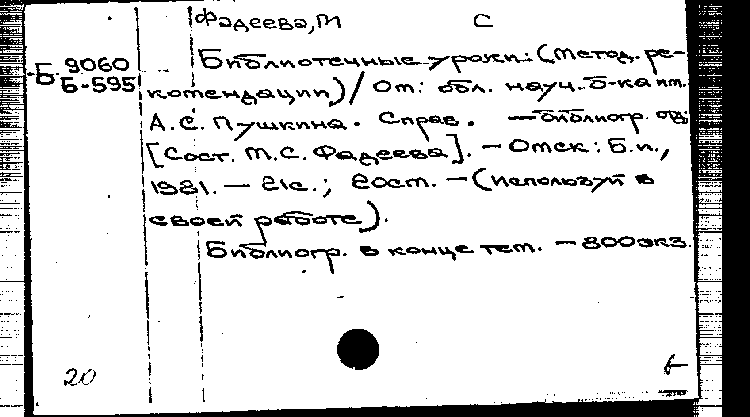 Фадеева, М С
Б 9060
Б-595
Библиотечные уроки: (Метод. ре-
комендации) / Ом. обл. науч. б-ка им.
А.С. Пушкина. Справ. — библиогр. отд;
[Сост. М.С. Фадеева]. — Омск: Б.и.,
1981. — 21с.; 20см. — (Используй в
своей работе).
Библиогр. в конце тем. — 800экз.
20